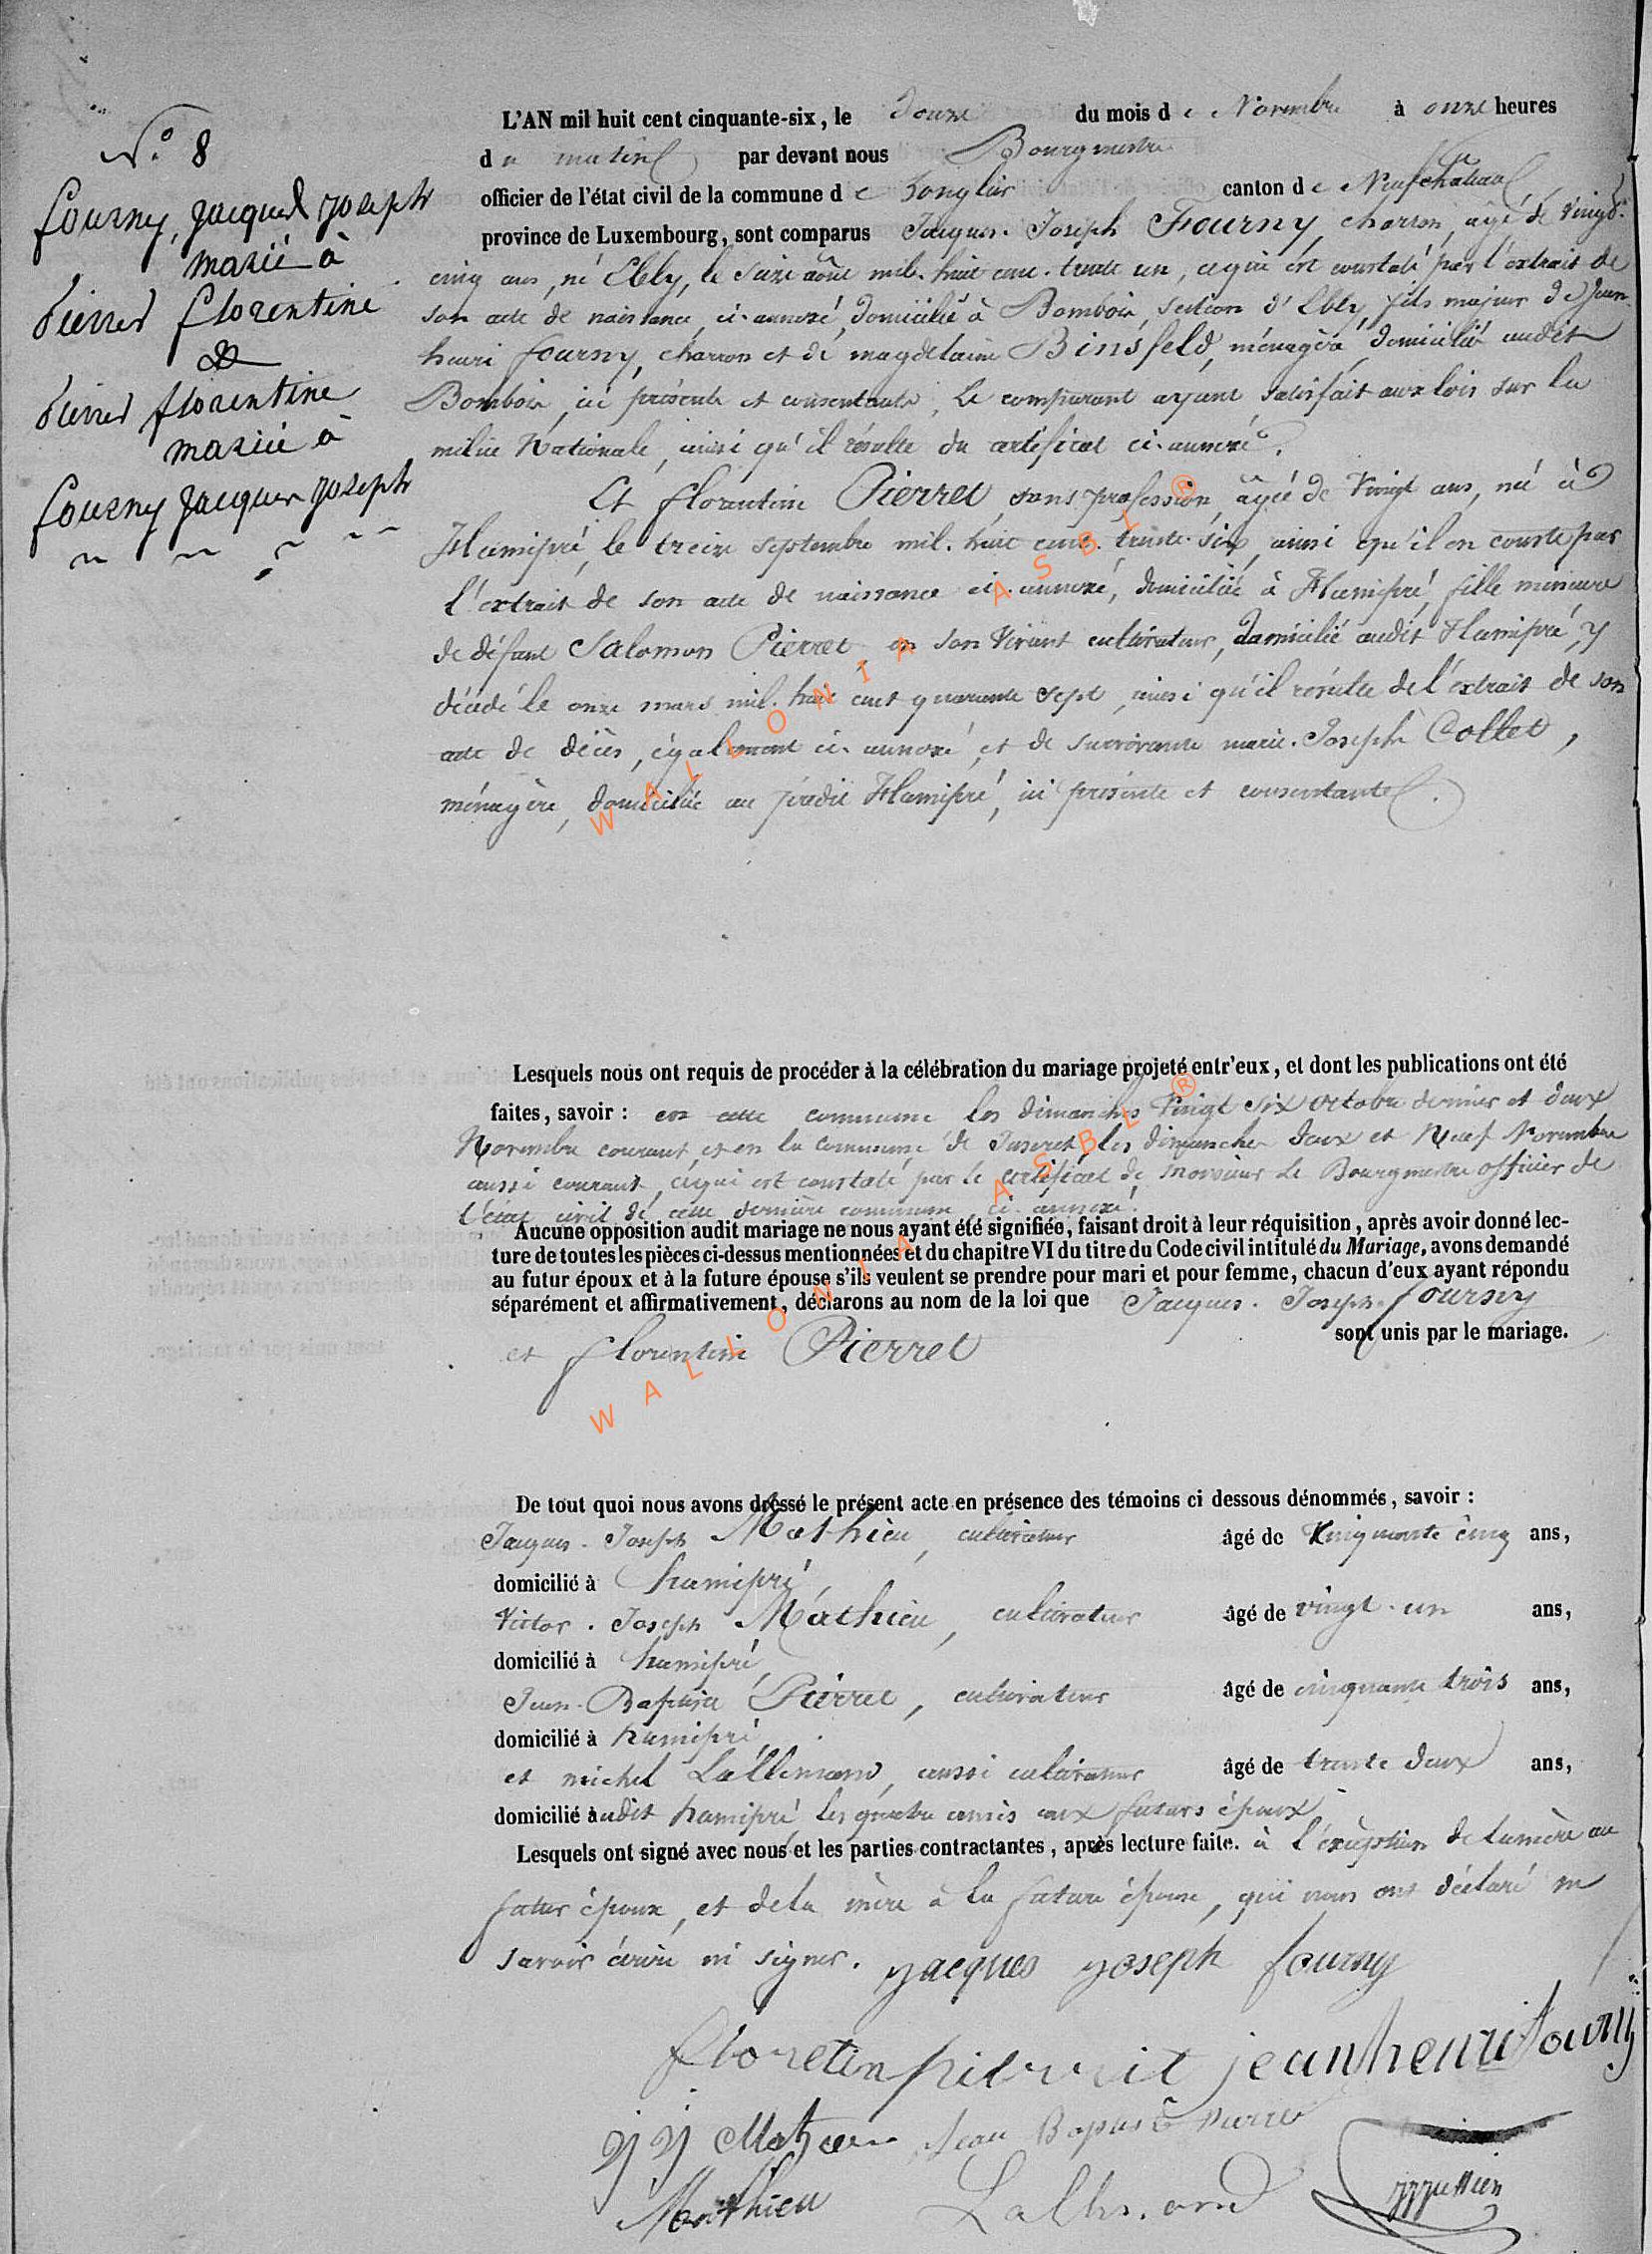 N.o 8
fourny, jacques joseph
marié à
Pierret florentine
&
Pierret florentine
mariée à
fourny jacques joseph
L'AN mil huit cent cinquante-six, le Douze du mois de Novembre à onze heures
du matin par devant nous Bourgmestre
officier de l'état civil de la commune de Longlier canton de Neufchâteau
province de Luxembourg, sont comparus Jacques-Joseph Fourny, charron, âgé de vingt-
cinq ans, né Ebly, le seize août mil-huit cent-trente un, ce qui est constaté par l'extrait de
son acte de naissance ci-annexé, domicilié à Bombois, section d'Ebly, fils majeur de Jean
henri fourny, charron et de magdelaine Binsfeld, ménagère, domiciliés audit
Bombois, ici présents et consentants, Le comparant ayant satisfait aux lois sur la
milice Nationale, ainsi qu'il résulte du certificat ci-annexé.
Et florentine Pierret, sans profession, âgée de Vingt ans, née à
Hamipré, le treize septembre mil-huit cent-trente-six, ainsi qu'il en conste par
l'extrait de son acte de naissance ci-annexé, domiciliée à Hamipré, fille mineure
de défunt Salomon Pierret en son vivant cultivateur, domicilié audit Hamipré, y
décédé le onze mars mil-huit cent quarante sept, ainsi qu'il résulte de l'extrait de son
acte de décès, également ci-annexé, et de survivante marie-Joseph Collet,
ménagère, domiciliée au prédit Hamipré, ici présente et consentante.
WALLONIA ASBL ®
Lesquels nous ont requis de procéder à la célébration du mariage projeté entr'eux, et dont les publications ont été
faites, savoir : en cette commune les dimanches Vingt six octobre dernier et deux
Novembre courant, et en la commune de Juseret, les dimanches deux et Neuf Novembre
aussi courant, ce qui est constaté par le certificat de monsieur Le Bourgmestre officier de
l'état civil de cette dernière commune, ci-annexé.
Aucune opposition audit mariage ne nous ayant été signifiée, faisant droit à leur réquisition, après avoir donné lec-
ture de toutes les pièces ci-dessus mentionnées et du chapitre VI du titre du Code civil intitulé du Mariage, avons demandé
au futur époux et à la future épouse s'ils veulent se prendre pour mari et pour femme, chacun d'eux ayant répondu
séparément et affirmativement, déclarons au nom de la loi que Jacques-Joseph fourny
et florentine Pierret sont unis par le mariage.
WALLONIA ASBL ®
De tout quoi nous avons dressé le présent acte en présence des témoins ci dessous dénommés, savoir :
Jacques-Joseph Mathieu, cultivateur âgé de cinquante cinq ans,
domicilié à hamipré,
Victor-Joseph Mathieu, cultivateur âgé de vingt-un ans,
domicilié à hamipré,
Jean-Baptiste Pierret, cultivateur âgé de cinquante trois ans,
domicilié à hamipré,
et michel Lallemand, aussi cultivateur âgé de trente deux ans,
domicilié audit hamipré, les quatre amis aux futurs époux
Lesquels ont signé avec nous et les parties contractantes, après lecture faite. à l'exception de la mère au
futur époux, et de la mère à la future épouse, qui nous ont déclaré ne
savoir écrire ni signer. jacques joseph fourny
floretin pierrit jean henri fourny
J J Mathieu Jean Baptiste Pierret
Mathieu Lallemand